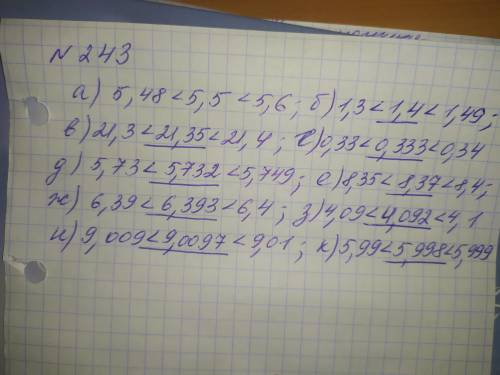 N 243
а) 5,48<5,5<5,6; б) 1,3<1,4<1,49;
в) 21,3<21,35<21,4; г) 0,33<0,333<0,34
д) 5,73<5,732<5,749; е) 8,35<8,37<8,4;
ж) 6,39<6,393<6,4; з) 4,09<4,092<4,1
и) 9,009<9,0097<9,01; к) 5,99<5,998<5,999